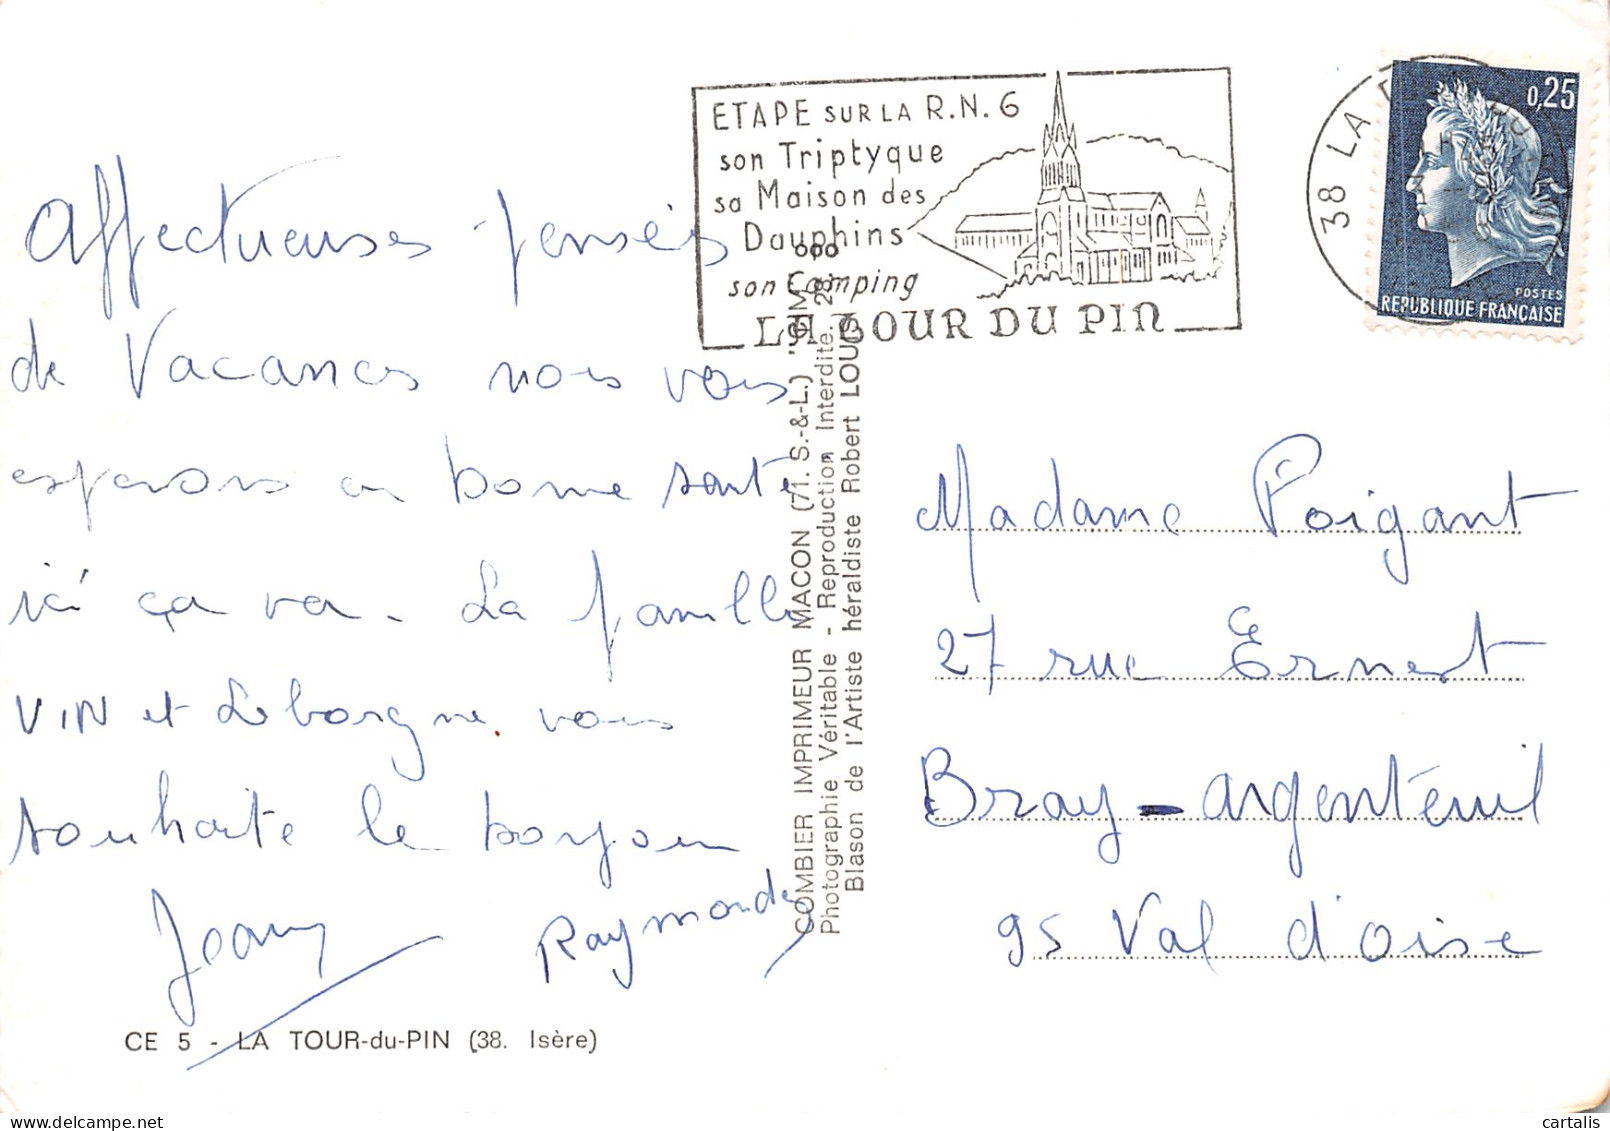 Affectueuses pensées
de Vacances nous vous
esperons en bonne santé
ici ça va - La famille
VIN et Leborgne vous
souhaite le bonjour
Jeany
Raymonde
CE 5 - LA TOUR-du-PIN (38. Isère)
COMBIER IMPRIMEUR MACON (71. S.-&-L.) "CIM"
Photographie Véritable - Reproduction Interdite.
Blason de l'Artiste héraldiste Robert LOUIS
ETAPE SUR LA R.N. 6
son Triptyque
sa Maison des
Dauphins
son Camping
LA TOUR DU PIN
38 LA
0,25
POSTES
REPUBLIQUE FRANÇAISE
Madame Poigant
27 rue Ernest
Bray - argenteuil
95 Val d'oise
cartalis